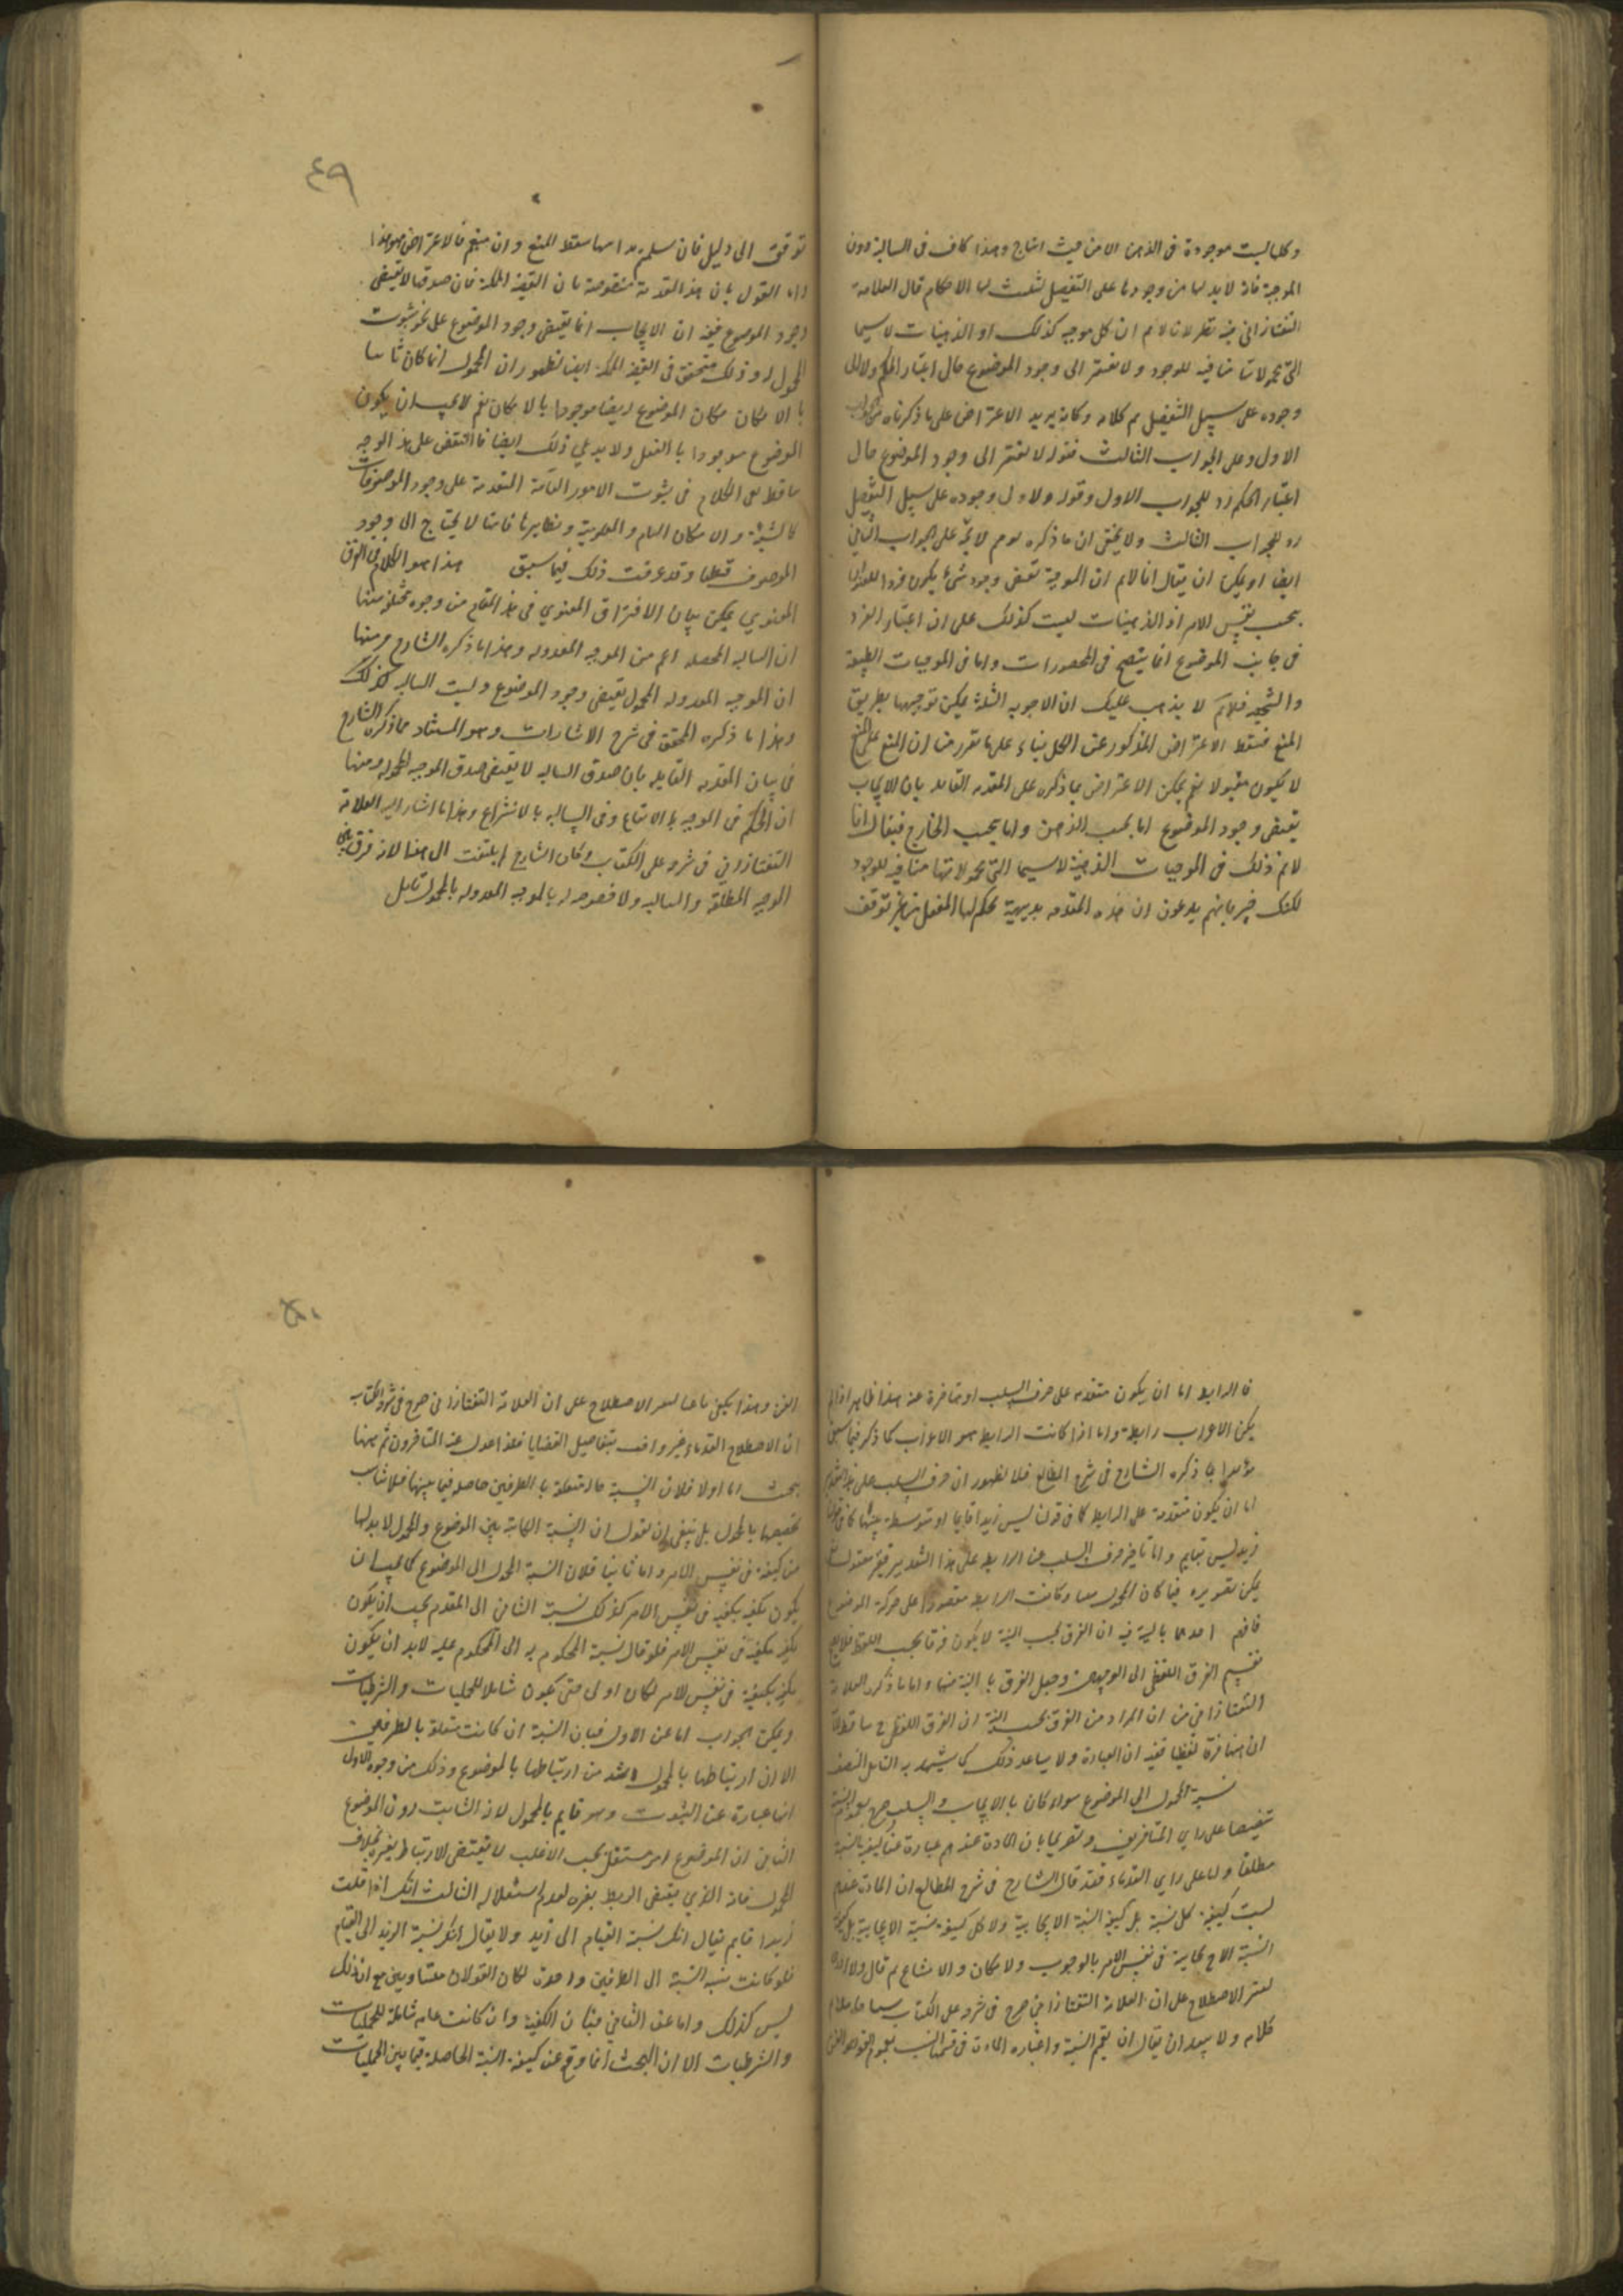 وكلها ليست موجودة فى الذهن الا من حيث انتاج وهذا كاف فى السالبة دون
الموجبة فانه لا بد لها من وجودها على التفصيل لتثبت لها الاحكام قال العلامة
التفتازانى فيه نظر لانا لانم ان كل موجبه كذلك او الذهنيات لا سيما
التى محمولاتها منافيه للوجود ولا نفتقر الى وجود الموضوع حال اعتبار الحكم ولا الى
وجوده على سبيل التفصيل تم كلامه وكانه يريد الاعتراض على ما ذكرناه
الاول وعلى الجواب الثالث فقوله لا نفتقر الى وجود الموضوع حال
اعتبار الحكم رد للجواب الاول وقوله ولا الى وجوده على سبيل التفصيل
رد للجواب الثالث ولا يخفى ان ما ذكره لو تم لا يتم على الجواب الثانى
ايضا اذ يمكن ان يقال انا لانم ان الموجبة تقتضى وجود شئ يكون فردا للعنوان
بحسب نفس الامر اذ الذهنيات ليست كذلك على ان اعتبار الفرد
فى جانب الموضوع انما يتضح فى المحصورات واما فى الموجبات الطبيعة
والشخصية فلا ثم لا يذهب عليك ان الاجوبه الثلثة يمكن توجيهها بطريق
المنع فسقط الاعتراض المذكور عن الكل بناء على ما تقرر من ان المنع على المنع
لا يكون مقبولا نعم يمكن الاعتراض بما ذكره على المقدمه القائله بان الايجاب
يقتضى وجود الموضوع اما بحسب الذهن واما بحسب الخارج فيقال انا
لانم ذلك فى الموجبات الذهنية لا سيما التى محمولاتها منافيه للوجود
لكنك خبير بانهم يدعون ان هذه المقدمه بديهية يحكم بها العقل من غير توقف
توقف الى دليل فان سلم بداهتها سقط المنع وان منع فالاعتراض هو هذا
واما القول بان هذه المقدمة منقوضة بان القضية الممكنة فان صدقها لا يقتضى
وجود الموضوع ففيه ان الايجاب انما يقتضى وجود الموضوع على نحو ثبوت
المحمول له وذلك متحقق فى القضية الممكنة ايضا لظهور ان المحمول اذا كان ثابتا
بالامكان كان الموضوع ايضا موجودا بالامكان نعم لا يجب ان يكون
الموضوع موجودا بالفعل ولا يدعى ذلك ايضا فالنقض على هذا الوجه
ساقط بقى الكلام فى ثبوت الامور العامة المتقدمة على وجود الموصوفات
كالشيئية والامكان العام والمعلومية ونظايرها فانها لا يحتاج الى وجود
الموصوف قطعا وقد عرفت ذلك فيما سبق هذا هو الكلام فى الفرق
المعنوي يمكن بيان الافتراق المعنوي فى هذا المقام من وجوه مختلفة منها
ان السالبه المحصله اعم من الموجبه المعدوله وهذا ما ذكره الشارح ومنها
ان الموجبه المعدوله المحمول يقتضى وجود الموضوع وليست السالبه كذلك
وهذا ما ذكره المحقق فى شرح الاشارات وهو المستفاد مما ذكره الشارح
فى بيان المقدمه القايله بان صدق السالبه لا يقتضى صدق الموجبه المعدوله ومنها
ان الحكم فى الموجبه بالايقاع وفى السالبه بالانتزاع وهذا ما اشار اليه العلامة
التفتازاني فى شرحه على الكتاب وكان الشارح لم يلتفت الى هذا لانه فرق بين
الموجبه المطلقة والسالبه ولا خصوصه له بالموجبه المعدوله بالمحمول تأمل
فالرابط اما ان يكون متقدمه على حرف السلب او متاخرة عنه هذا ظاهر اذا لم
يكن الاعراب رابطة واما اذا كانت الرابط هو الاعراب كما ذكر فيما سبق
مؤيدا بما ذكره الشارح فى شرح المطالع فلا لظهور ان حرف السلب على هذا التقدير
اما ان يكون متقدمة على الرابط كما فى قولنا ليس زيد قايما او متوسطة بينها كما فى قولنا
زيد ليس بقايم واما تاخير حرف السلب عن الرابط على هذا التقدير فغير معقول نعم
يمكن تصويره فيما كان المحمول وكانت الرابط مقصورا على حركة الموضوع
فافهم احدهما بالنية فيه ان الفرق بحسب النية لا يكون فرقا بحسب اللفظ فلا يصح
تقسيم الفرق اللفظى الى الوجهين وجعل الفرق بالنية منها واما ما ذكره العلامة
التفتازانى من ان المراد من الفرق بحسب النية ان الفرق اللفظى ساقط
ان هنا فرقا لفظيا ففيه ان العبارة ولا يساعد ذلك كما يشهد به التامل المنصف
نسبة المحمول الى الموضوع سواء كان بالايجاب والسلب صرح بعموم النسبة
تنصيصا على راي المتاخرين وتصريحا بان المادة عندهم عبارة عن كيفية النسبة
مطلقا واما على راي القدماء فقد قال الشارح فى شرح المطالع ان المادة عندهم
ليست كيفية كل نسبة بل كيفية النسبة الايجابية ولا كل كيفية نسبة الايجابية بل كيفية
النسبة الايجابية فى نفس الامر بالوجوب والامكان والامتناع ثم قال ولا ادرى
لتغير الاصطلاح على ان العلامة التفتازانى صرح فى شرحه على الكتاب
كلامه ولا يبعد ان يقال ان تعميم النسبة واعتبار المادة فى
الفن وهذا يكفى باعثا لتغير الاصطلاح على ان العلامة التفتازانى صرح فى شرح الكتاب
ان الاصطلاح القدماء غير واف بتفاصيل القضايا فلذا عدل عنه المتاخرون ثم ههنا
بحث اما اولا فلان النسبة حالة متعلقة بالطرفين حاصله فيما بينها فلا يناسب
تخصيصها بالمحمول بل ينبغى ان نقول ان النسبة القائمة بين الموضوع والمحمول لا بد لها
من كيفية فى نفس الامر واما ثانيا فلان النسبة المحمول الى الموضوع كما يجب ان
يكون مكيفة بكيفية فى نفس الامر كذلك نسبة التالى الى المقدم يجب ان يكون
مكيفة بكيفية فى نفس الامر فلو قال نسبة المحكوم به الى المحكوم عليه لا بد ان يكون
مكيفة بكيفية فى نفس الامر لكان اولى حتى يكون شاملا للحمليات والشرطيات
ويمكن الجواب اما عن الاول فبان النسبة ان كانت متعلقة بالطرفين
الا ان ارتباطها بالمحمول اشد من ارتباطها بالموضوع وذلك من وجوه الاول
انها عبارة عن الثبوت وهو قايم بالمحمول لانه الثابت دون الموضوع
الثانى ان الموضوع امر مستقل بحسب الاغلب لا يقتضى للارتباط بغيره بخلاف
المحمول فانه الذي يقتضى الربط بغيره لعدم استقلاله الثالث انك اذا قلت
زيد قايم يقال انك نسبة القيام الى زيد ولا يقال انك نسبة الزيد الى القيام
فلو كانت نسبة النسبة الى الطرفين واحدة لكان القولان متساويين مع ان ذلك
ليس كذلك واما عن الثانى فبان الكيفية وان كانت عامه شاملة للحمليات
والشرطيات الا ان البحث انما وقع عن كيفية النسبة الحاصلة فيما بين الحمليات